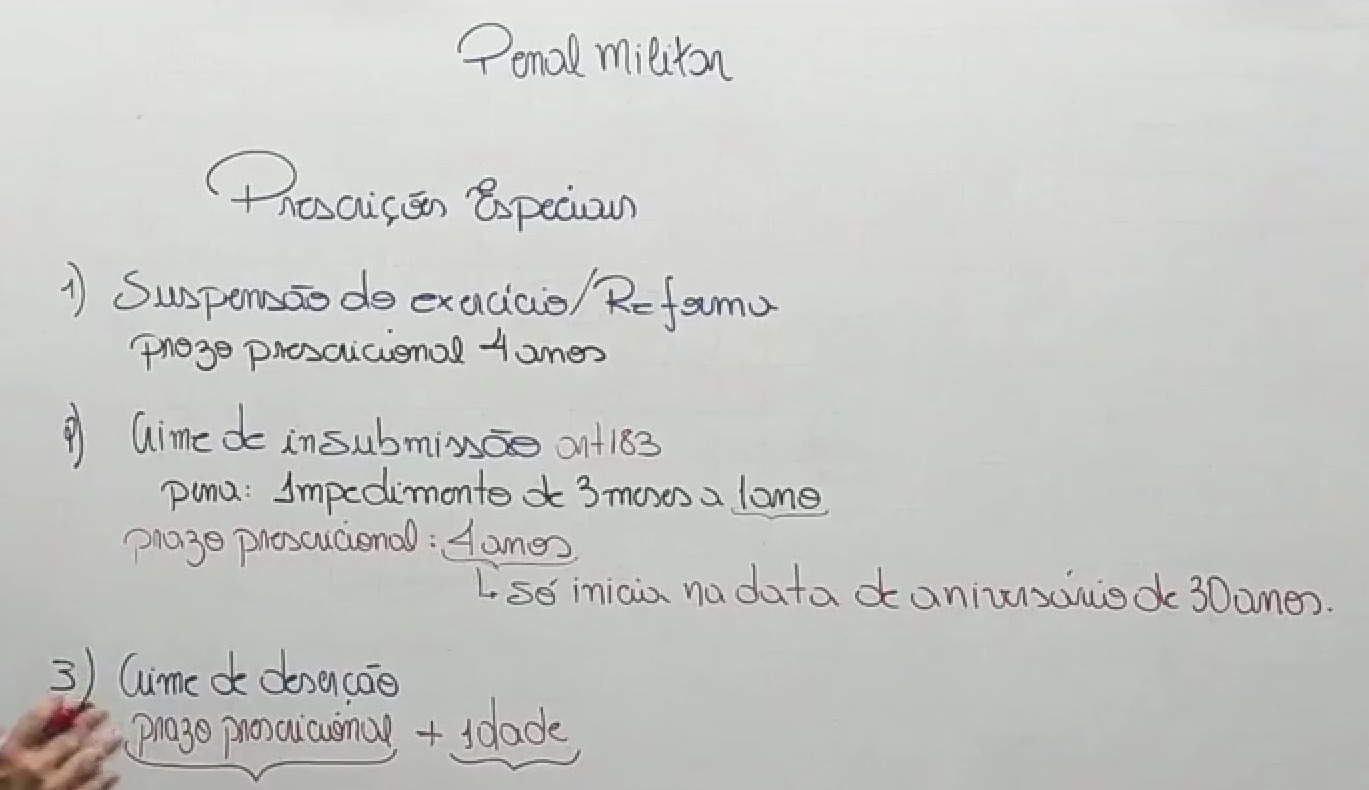 Penal militar
Prescrições Especiais
1) Suspensão do exercício/Reforma
prazo prescricional 4 anos
2) Crime de insubmissão art 183
pena: Impedimento de 3 meses a 1 ano
prazo prescricional: 4 anos
↳ só inicia na data de aniversário de 30 anos.
3) Crime de deserção
prazo prescricional + idade